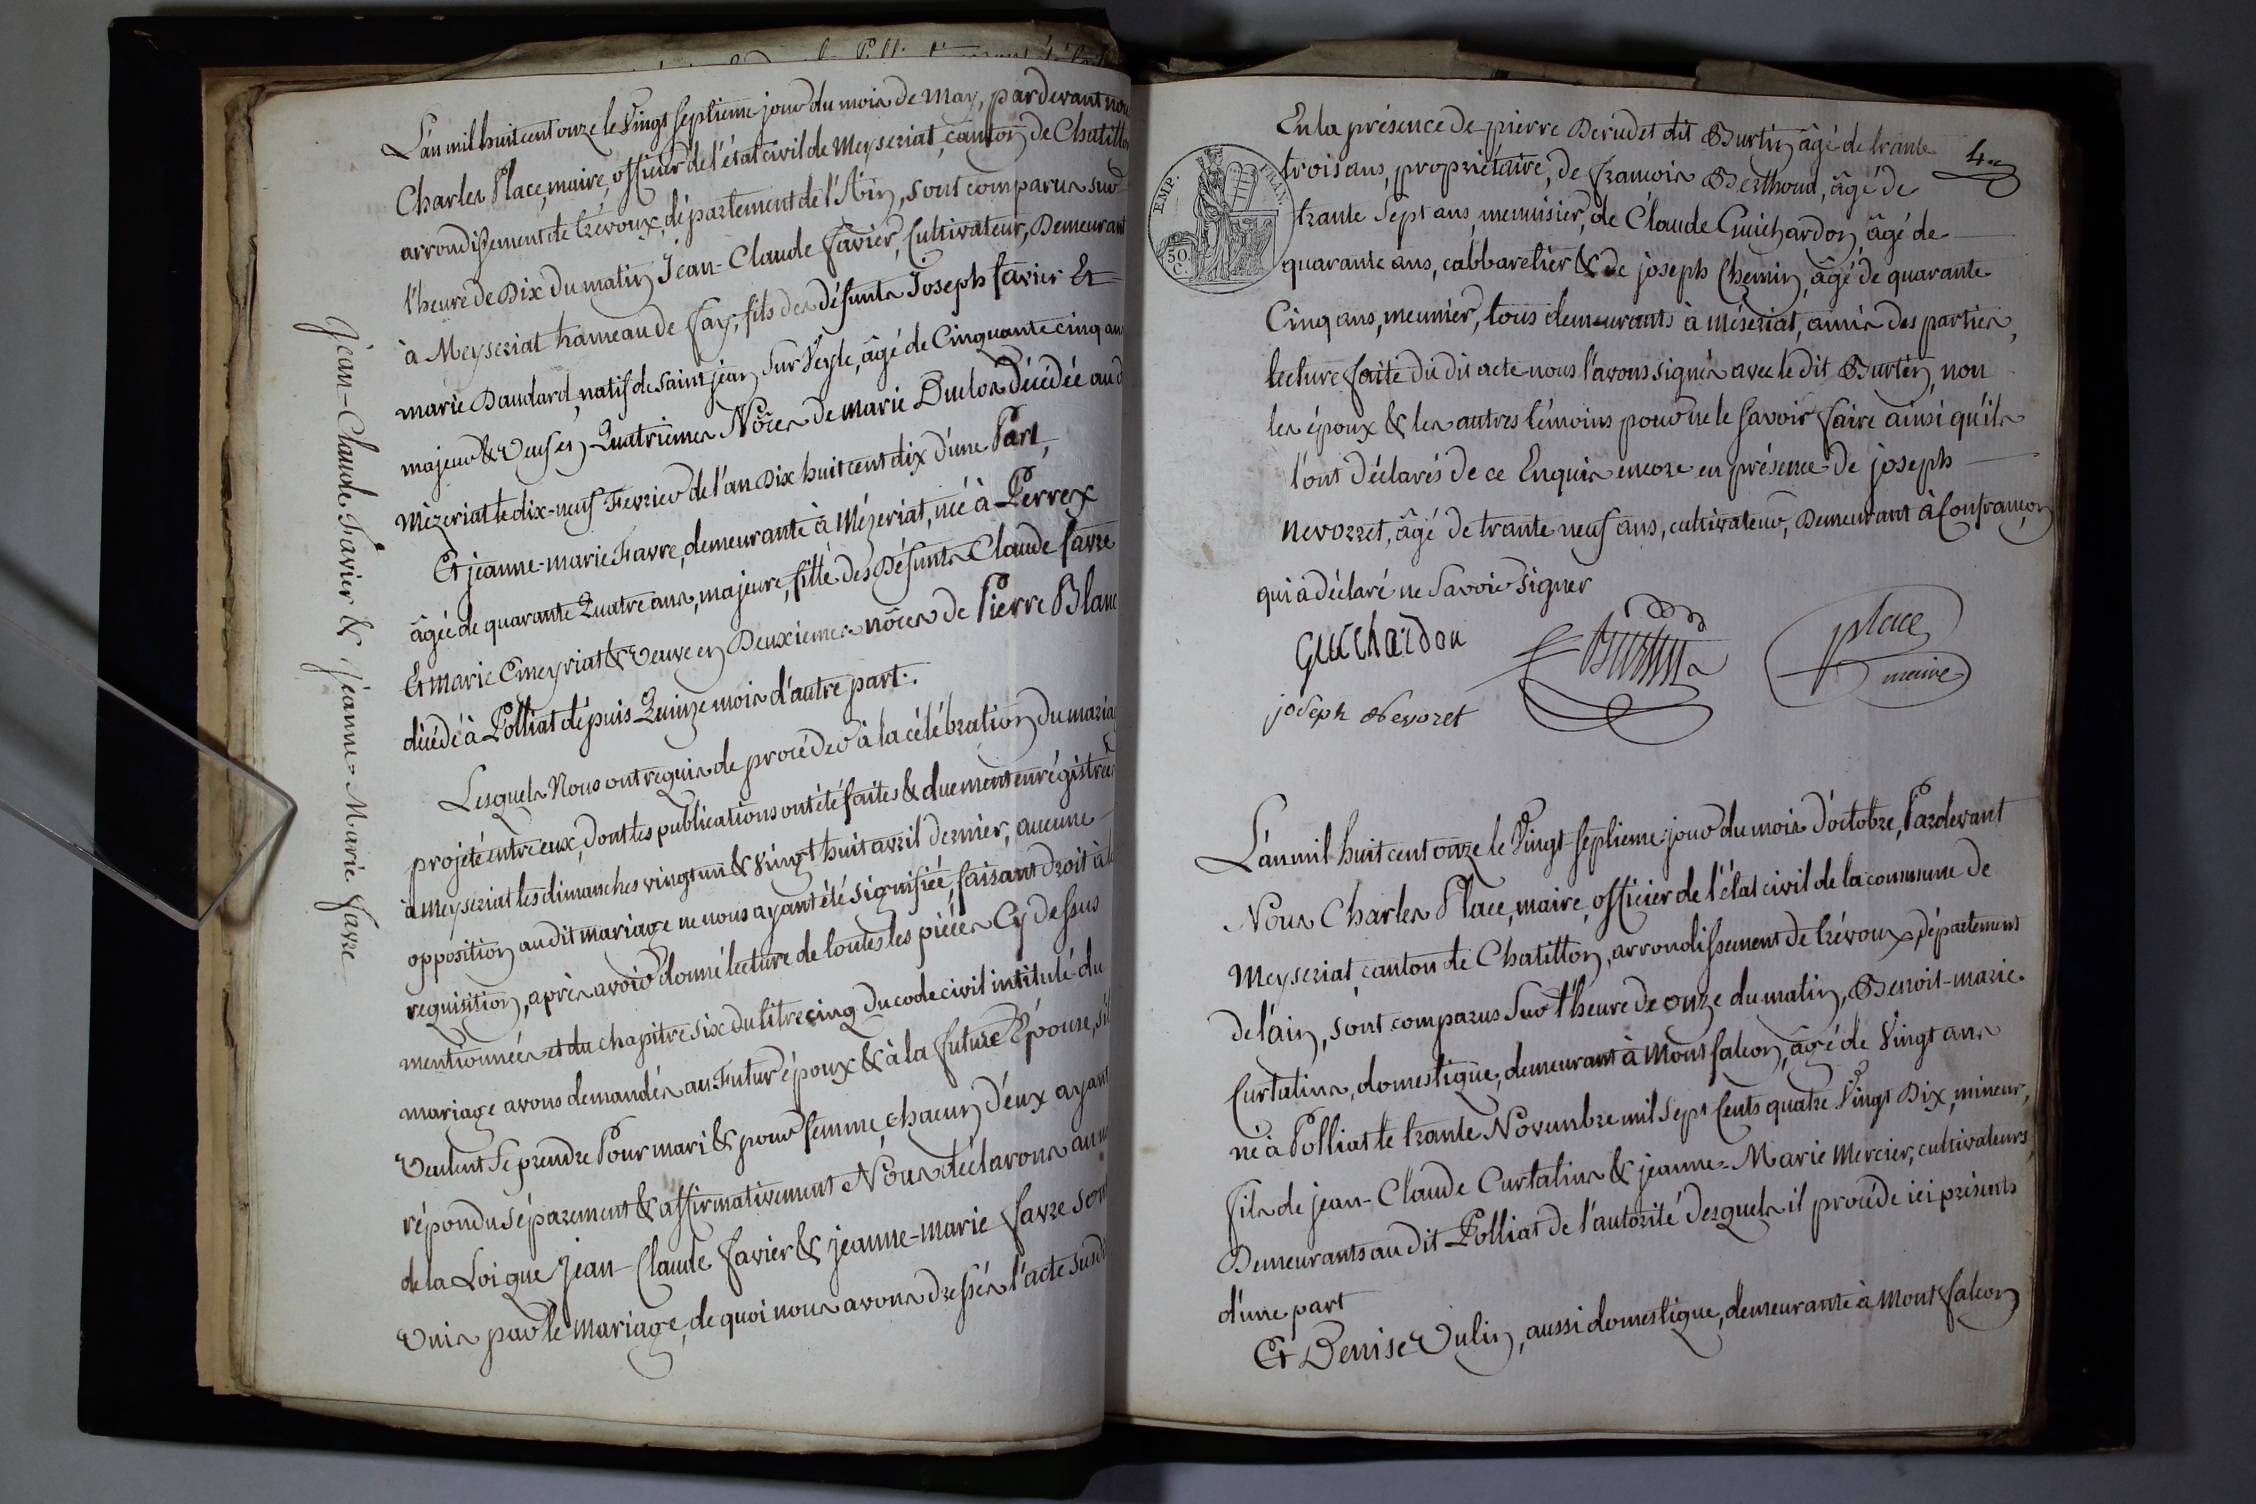 L'an mil huit cent onze le Vingt septieme jour du mois de May, pardevant nou
Charles Place, maire, officier de l'état civil de Meyseriat, canton de Chatillon
arrondissement de trévoux, département de l'Ain, sont comparus sur
l'heure de Dix du matin Jean-Claude Favier, Cultivateur, Demeurant
à Meyseriat hameau de Fay, fils des défunts Joseph favier Et
marie Daudard, natif de saint jean Sur Veyle, âgé de Cinquante cinq ans
majeur & Veuf en Quatriemes Nôces de marie Duclos décédée au d
Mézeriat le dix-neuf Fevrier de l'an Dix huit cent dix d'une Part,
Et jeanne-marie Favre, demeurante à Mézeriat, née à Perrex
âgée de quarante Quatre ans, majeure, fille des Défunts Claude favre
Et Marie Emeyriat & Veuve en Deuxiemes nôces de Pierre Blanc
décédé à Polliat dépuis Quinze mois d'autre part.
Lesquels Nous ont requis de procéder à la célébration du mariag
projeté entre eux, dont les publications ont été faites & duement enrégistrées
à Meyseriat les dimanches vingt un & vingt huit avril dernier, aucune
opposition au dit mariage ne nous ayant été signifiée, faisant droit à le
requisition, après avoir donné lecture de toutes les pièces Cy dessus
mentionnées et du chapitre six du titre cinq du code civil intitulé du
mariage avons demandés au Futur époux & à la future Epouse, s'il
Veulent se prendre Pour mari & pour femme, chacun d'eux ayant
répondu séparement & affirmativement Nous déclarons au n
de la Loi que Jean-Claude Favier & jeanne-marie favre sont
Unis par le Mariage, de quoi nous avons dressés l'acte susd
Jean-Claude Favier & Jeanne-Marie favre
4e
EMP. FRAN.
50 C.
En la présence de pierre Derudet dit Burtin âgé de trante
trois ans, propriétaire, de francois Berthoud, âgé de
trante Sept ans, menuisier, de Claude Guichardon, âgé de
quarante ans, cabbaretier & de joseph Chemin, âgé de quarante
Cinq ans, meunier, tous demeurants à Méseriat, amis des parties,
lecture faite du dit acte nous l'avons signés avec le dit Burtin, non
les époux & les autres témoins pour ne le savoir faire ainsi qu'ils
l'ont déclarés de ce Enquis encore en présence de joseph
nevorret, âgé de trante neuf ans, cultivateur, Demeurant à Confrançon
qui a déclaré ne Savoir Signer
Guichardon Burtin place
maire
joseph Nevoret
L'an mil huit cent onze le Vingt-septieme jour du mois d'octobre, Pardevant
Nous Charles Place, maire, officier de l'état civil de la commune de
Meyseriat, canton de Chatillon, arrondissement de trévoux, département
de l'ain, sont comparus Sur l'heure de onze du matin, Benoit-marie
Curtalins, domestique, demeurant à Montfalcon, âgé de Vingt ans
né à Polliat le trante Novembre mil sept Cents quatre Vingt Dix, mineur,
fils de jean-Claude Curtalins & jeanne-Marie Mercier, cultivateurs,
Demeurants au dit Polliat de l'autorité desquels il procéde ici présents
d'une part
Et Denise Vulin, aussi domestique, demeurante à Montfalcon